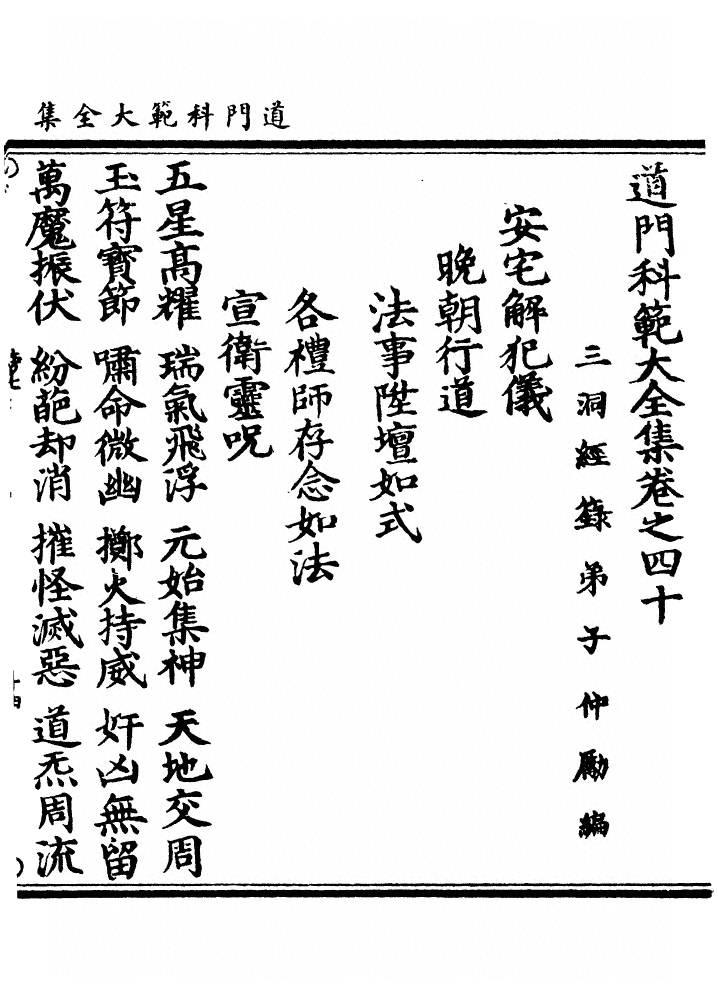 道門科範大全集
道門科範大全集卷之四十
三洞經籙弟子仲勵編
安宅解犯儀
晚朝行道
法事陞壇如式
各禮師存念如法
宣衛靈呪
五星高耀 瑞氣飛浮 元始集神 天地交周
玉符寶節 嘯命微幽 擲火持威 奸凶無留
萬魔振伏 紛葩却消 摧怪滅惡 道炁周流